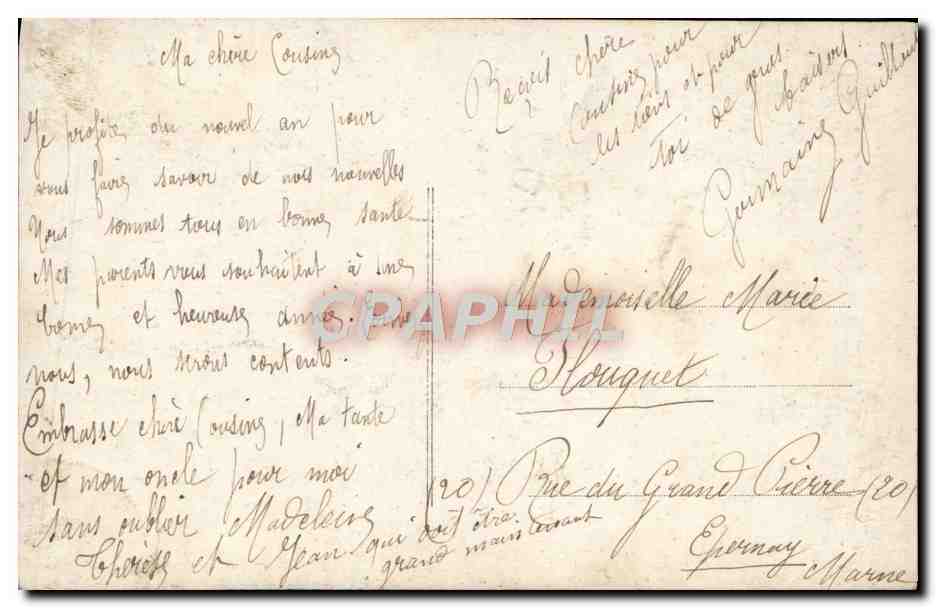 Ma chère Cousine
Je profite du nouvel an pour
vous faire savoir de nos nouvelles
Nous sommes tous en bonne santé
Mes parents vous souhaitent à une
bonne et heureuse année.
nous, nous serons contents.
Embrasse chère Cousine, Ma tante
et mon oncle pour moi
sans oublier Madeleine
Thérèse et Jean qui doit être
grand maintenant
Reçois chère
Cousine pour
les tiens et pour
toi de gros
baisers.
Germaine Guillaume
Mademoiselle Marie
Flouquet
(20) Rue du Grand Pierre (20)
Epernay
Marne
CPAPHIL